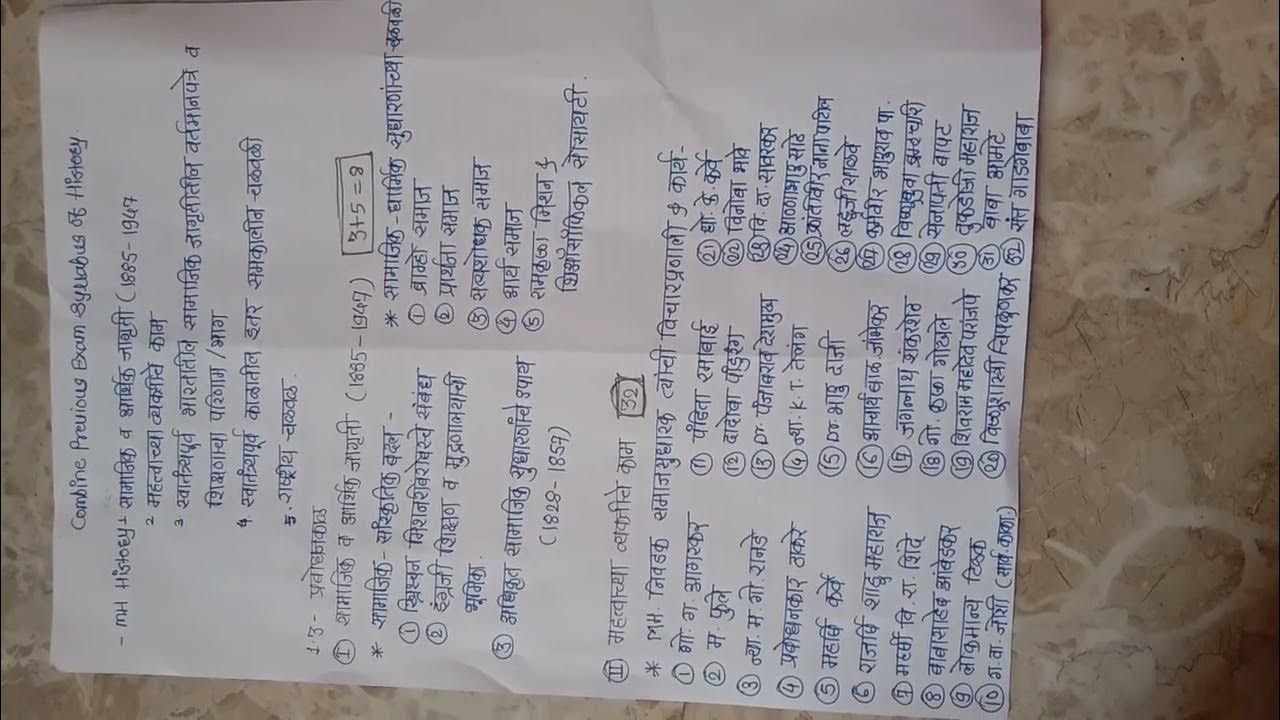 Combine Previous Exam Syllabus of History.
- MH History → सामाजिक व आर्थिक जागृती (1885-1947
2. महत्वाच्या व्यक्तींचे काम
3 स्वातंत्र्यपूर्व भारतातील सामाजिक जागृतीतील वर्तमानपत्रे व
शिक्षणाचा परिणाम / भाग
4. स्वातंत्र्यपूर्व काळातील इतर समकालीन चळवळी
5. राष्ट्रीय चळवळ.
1.3 - प्रबोधनकाळ
I सामाजिक व आर्थिक जागृती (1885-1947) 3+5=8
* सामाजिक - सांस्कृतिक बदल -
① ख्रिश्चन मिशनरीबरोबरचे संबंध
② इंग्रजी शिक्षण व मुद्रणालयाची
भूमिका.
③ अधिकृत सामाजिक सुधारणांचे उपाय
(1828-1857)
* सामाजिक - धार्मिक सुधारणांच्या चळवळी
① ब्राम्हो समाज
② प्रार्थना समाज
③ सत्यशोधक समाज
④ आर्य समाज
⑤ रामकृष्ण मिशन इ
थिऑसॉफिकल सोसायटी.
II महत्वाच्या व्यक्तींचे काम 32
* निवडक समाजसुधारक त्यांची विचारप्रणाली इ कार्य-
① गो. ग. आगरकर
② म. फुले
③ न्या. म. गो. रानडे
④ प्रबोधनकार ठाकरे
⑤ महर्षि कर्वे
⑥ राजर्षि शाहु महाराज
⑦ महर्षी वि. रा. शिंदे
⑧ बाबासाहेब आंबेडकर
⑨ लोकमान्य टिळक
⑩ ग. वा. जोशी (सार्व. काका.)
⑪ पंडिता रमाबाई
⑫ दादोबा पांडुरंग
⑬ Dr. पंजाबराव देशमुख
⑭ न्या. K. T. तेलंग
⑮ Dr. भाऊ दाजी
⑯ आचार्य बाळ जांभेकर
⑰ जगन्नाथ शंकरशेठ
⑱ गो. कृष्ण गोखले
⑲ शिवराम महादेव परांजपे
⑳ विष्णुशास्त्री चिपळुणकर
㉑ धों. के. कर्वे
㉒ विनोबा भावे
㉓ वि. दा. सावरकर
㉔ अण्णाभाऊ साठे
㉕ क्रांतीवीर नाना पाटील
㉖ लहुजी साळवे
㉗ कर्मवीर भाऊराव पा.
㉘ विष्णुबुवा ब्रम्हचारी
㉙ सेनापती बापट
㉚ तुकडोजी महाराज
㉛ बाबा आमटे
㉜ संत गाडगेबाबा